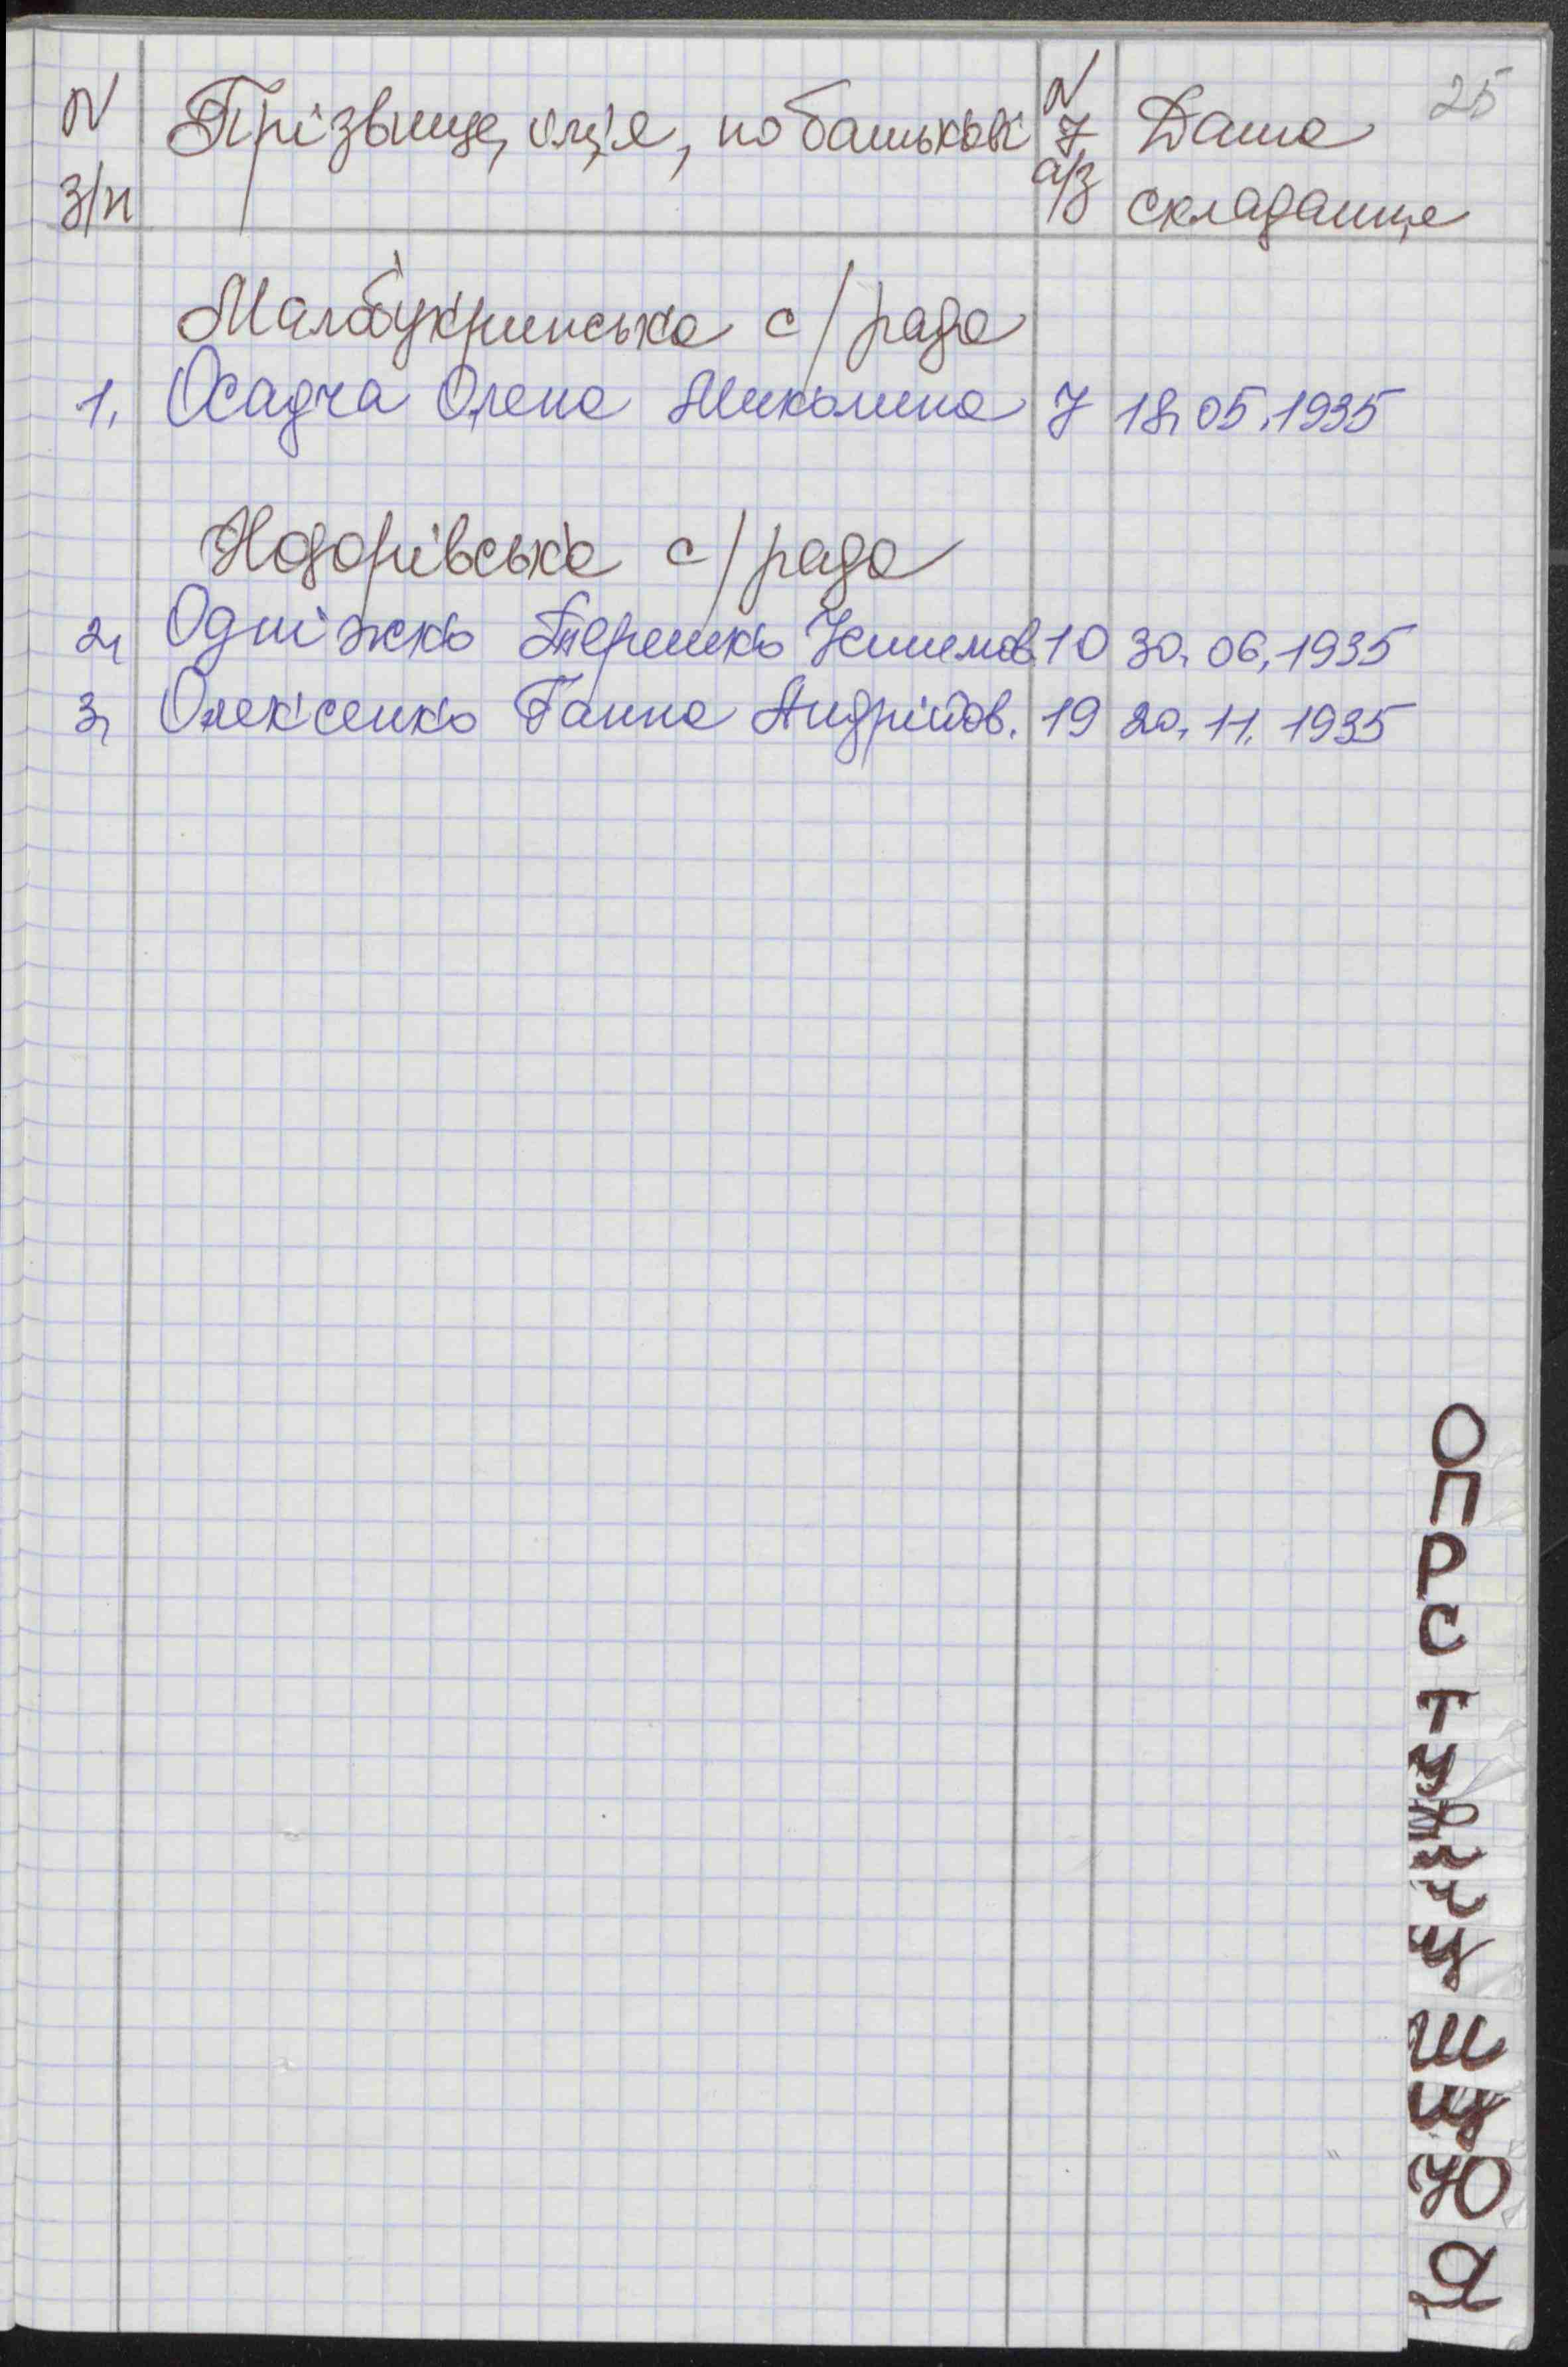 25
N з/п Прізвище, ім'я, по батькові N а/з Дата складання
Малобукринська с/рада
1. Осадча Олена Миколина 7 18.05.1935
Ходорівська с/рада
2. Одніжко Терешко 10 30.06.1935
3. Олексенко Ганна Андріїв. 19 20.11.1935
О
П
Р
С
Т
У
Ф
Х
Ч
Ц
Ш
Щ
Ю
Я